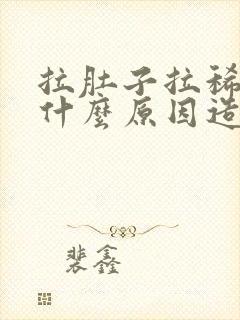 拉肚子拉稀
什麼原因造
裴鑫